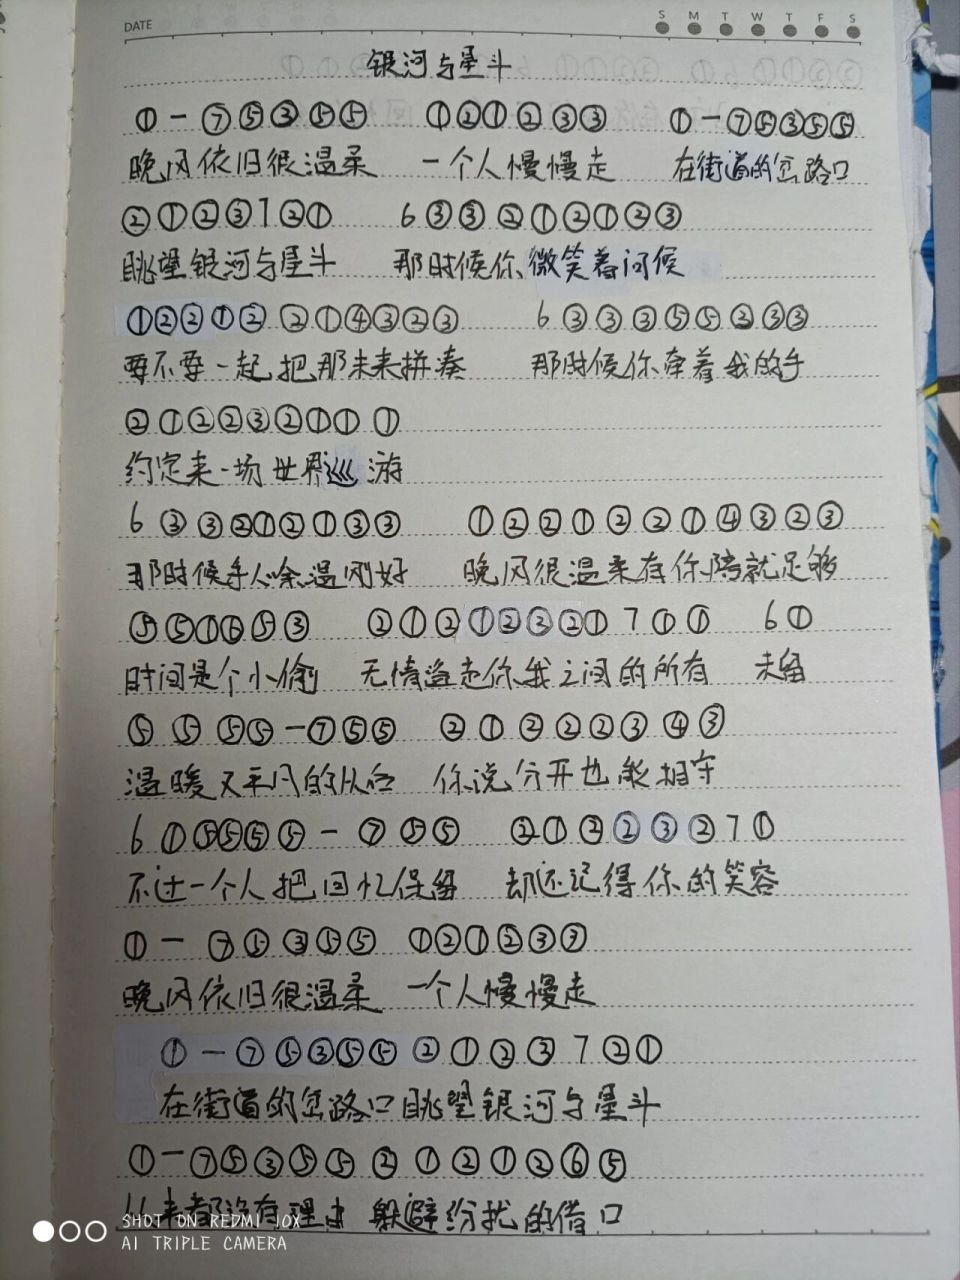 DATE
S M T W T F S
银河与星斗
① — ⑦ ⑤ ③ ⑤ ⑤ ① ② ① ② ③ ③ ① — ⑦ ⑤ ③ ⑤ ⑤
晚风依旧很温柔 一个人慢慢走 在街道的岔路口
② ① ② ③ 1 ② ① 6 ③ ③ ② ① ② ① ② ③
眺望银河与星斗 那时候你微笑着问候
① ② ② ① ② ② ① ④ ③ ② ③ 6 ③ ③ ③ ⑤ ⑤ ② ③ ③
要不要一起把那未来拼凑 那时候你牵着我的手
② ① ② ② ③ ② ① ① ①
约定来一场世界巡游
6 ③ ③ ② ① ② ① ③ ③ ① ② ② ① ② ② ① ④ ③ ② ③
那时候手心余温刚好 晚风很温柔有你陪就足够
⑤ ⑤ ① ⑥ ⑤ ③ ② ① ② ① ② ③ ② ① 7 ① ① 6 ①
时间是个小偷 无情盗走你我之间的所有 未留
⑤ ⑤ ⑤ ⑤ — ⑦ ⑤ ⑤ ② ① ② ② ② ③ ④ ③
温暖又平凡的从容 你说分开也能相守
6 ① ⑤ ⑤ ⑤ ⑤ — ⑦ ⑤ ⑤ ② ① ② ② ③ ② 7 ①
不过一个人把回忆保留 却还记得你的笑容
① — ⑦ ⑤ ③ ⑤ ⑤ ① ② ① ② ③ ③
晚风依旧很温柔 一个人慢慢走
① — ⑦ ⑤ ③ ⑤ ⑤ ② ① ② ③ 7 ② ①
在街道的岔路口眺望银河与星斗
① — ⑦ ⑤ ③ ⑤ ⑤ ② ① ② ① ② ⑥ ⑤
来都没有理由 躲避纷扰的借口
SHOT ON REDMI 10X
AI TRIPLE CAMERA